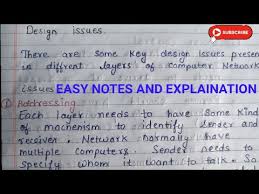 Design issues.
SUBSCRIBE
There are some key design issues present
in diffrent layers of computer Network
issues
EASY NOTES AND EXPLAINATION
① Addressing
Each layer needs to have some kind
of mechenism to identify sender and
receiver. Network normally have
multiple Computers. Sender needs to
specify whom it want to talk. So